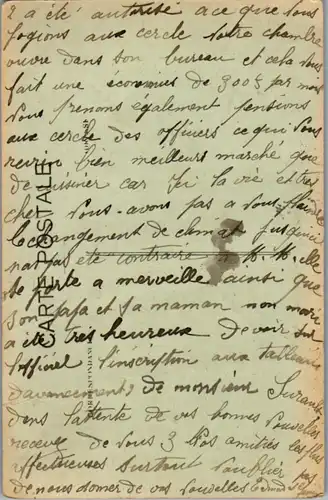 2 a été autorisé a ce que nous
logions aux cercle notre chambre
ouvre dans son bureau et cela nous
fait une économies de 300f par mois
nous prenons egalement pensions
aux cercle des officiers ce qui nous
bien meilleurs marché que
de cuisiner car ici la vie et tres
cher nous avons pas a nous plaindre
le changement de climat jusqu'ici
n'a pas été contraire a M. M. elle
se porte a merveille ainsi que
son papa et sa maman non moins
a été très heureux de voir sur
l'officiel l'inscription aux tableau
d'avancement de monsieur Durand
dans l'attente de vos bonnes nouvelles
recevez de nous 3 nos amitiés les plus
affectueuses surtout n'oublier pas
de nous donner de vos nouvelles
CARTE POSTALE
CORRESPONDANCE